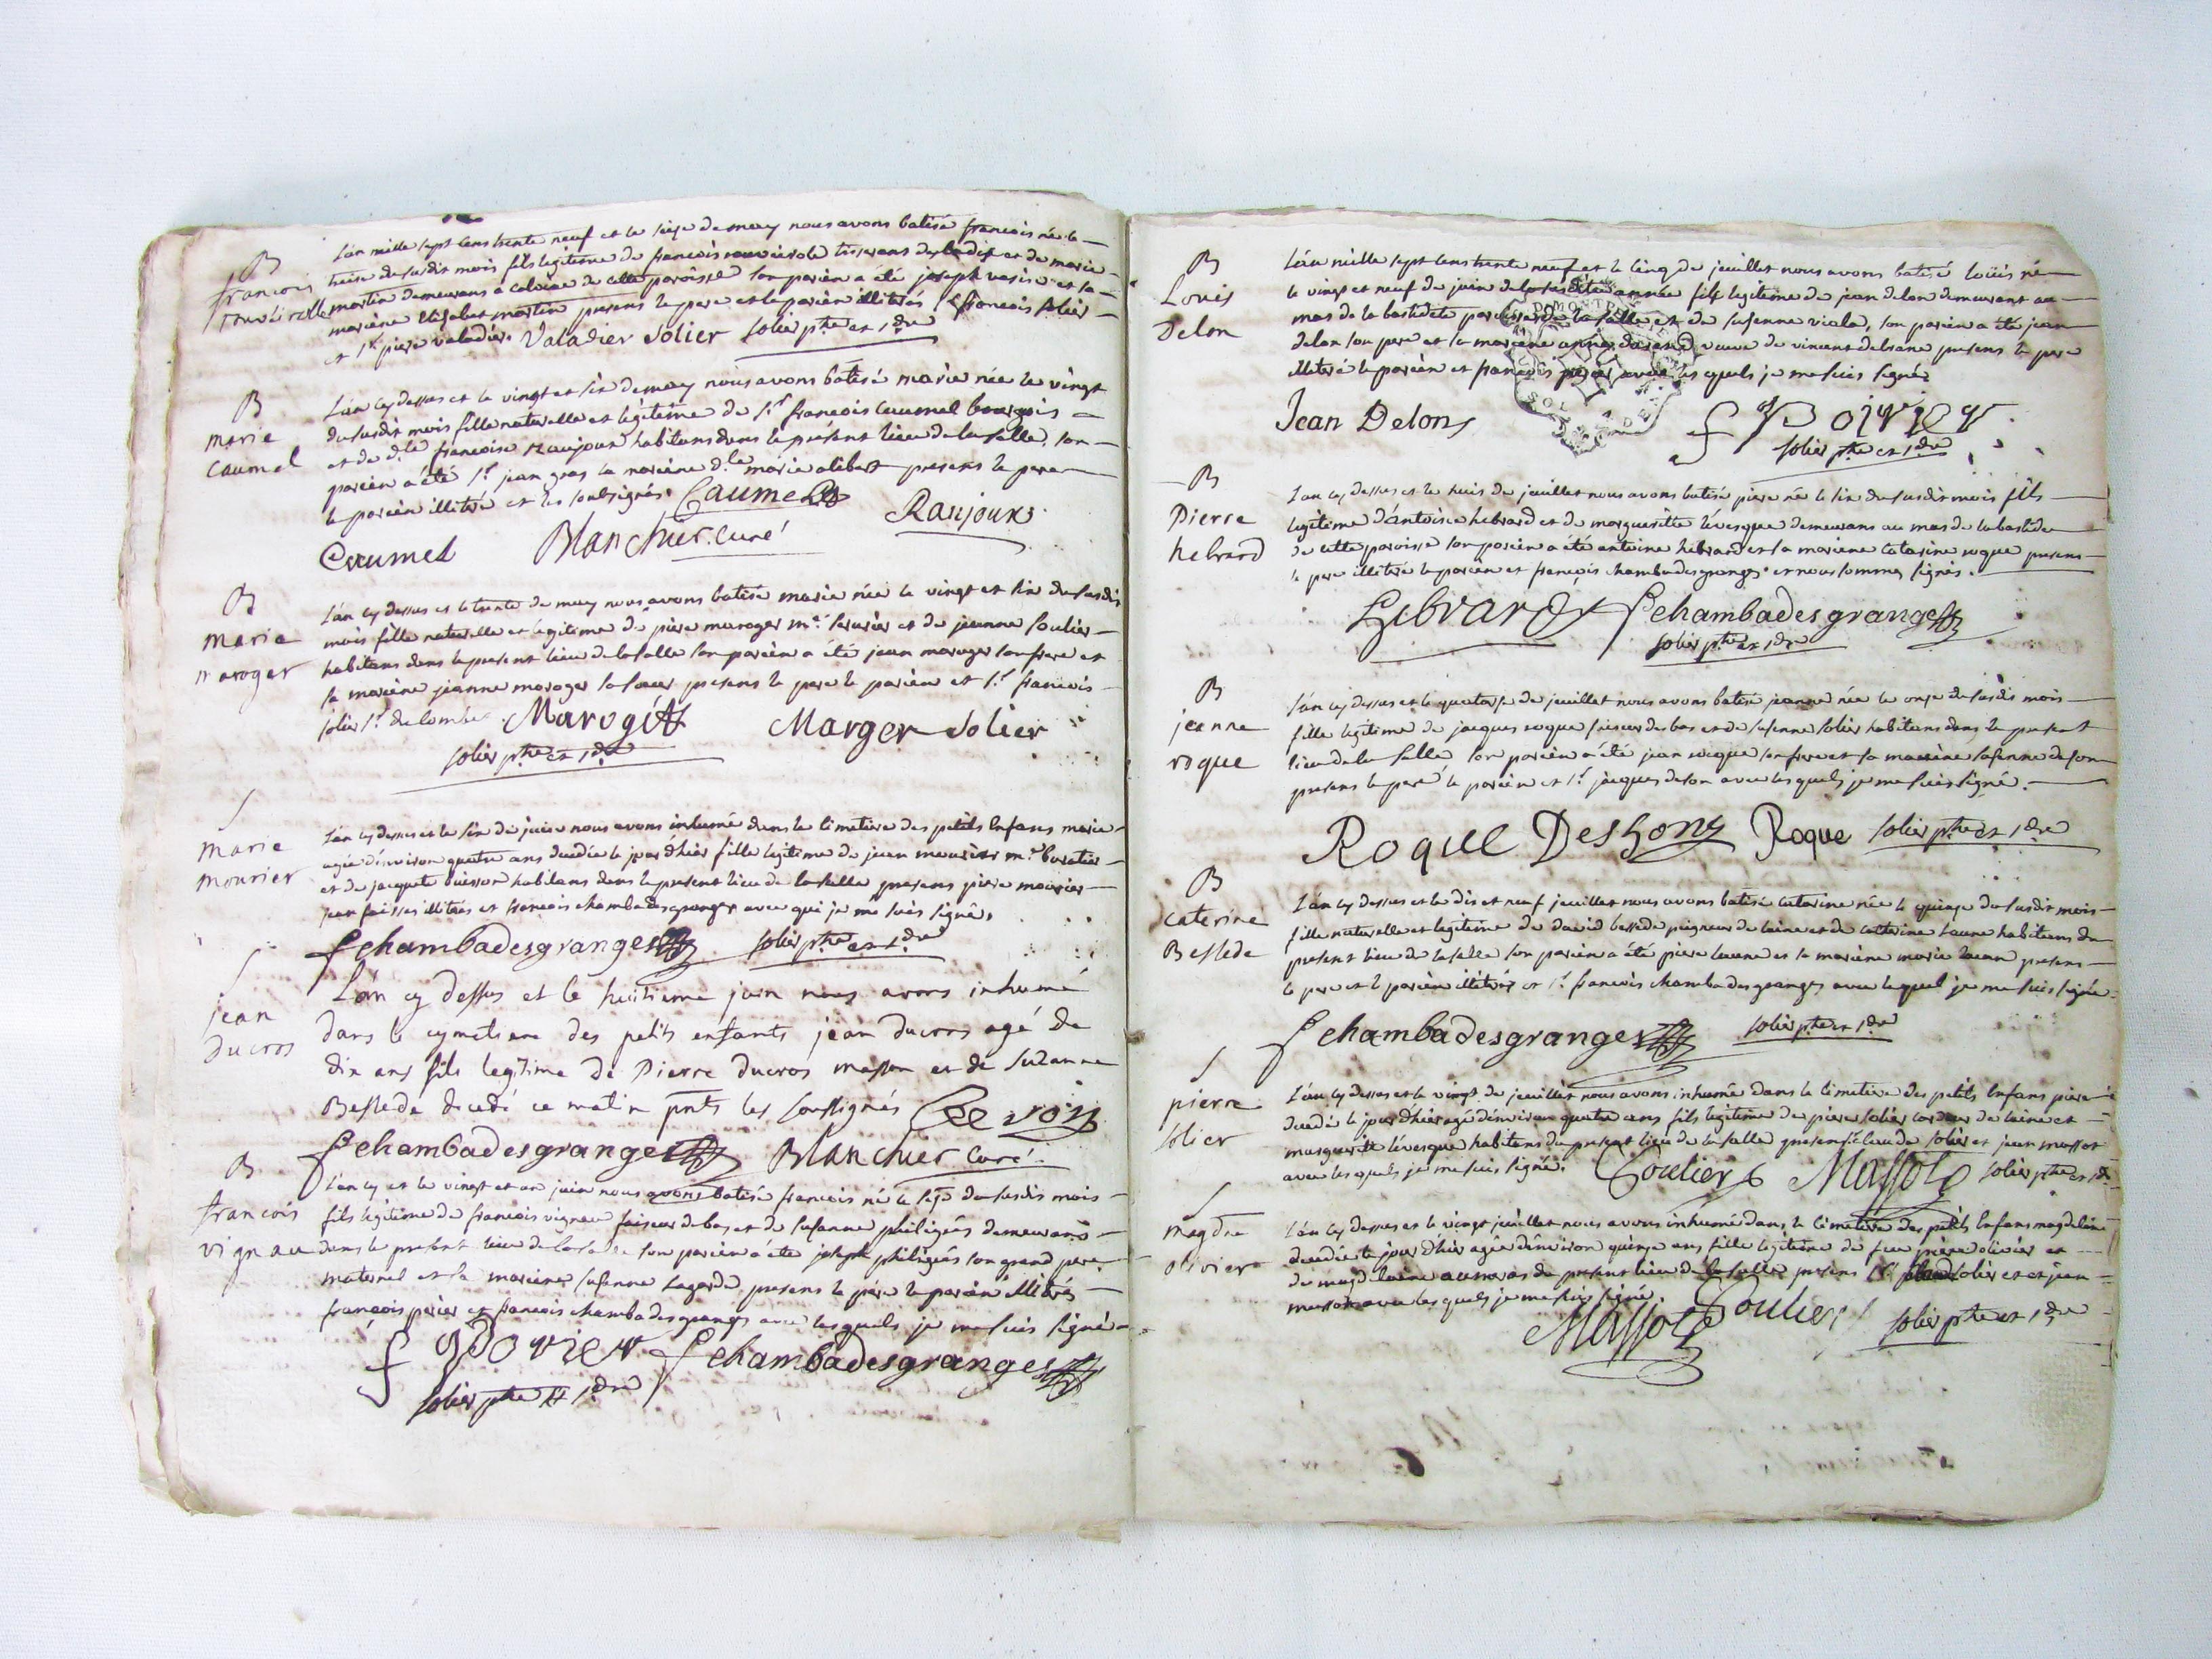 B
francois
L'an mille sept cens trente neuf et le seize de may nous avons batisé francois né le
treize du susdit mois fils legitime de francois tisserant de et de marie
martin demeurans a de cette paroisse son parèin a été joseph et sa
marèine martin presens le pere et le parèin illiterés francois solier
et sr piere valadier. Valadier Solier solier ptre et
B
marie
caumel
L'an cy dessus et le vingt et six de may nous avons batisé marie née le vingt
du susdit mois fille naturelle et légitime de sr francois caumel bourgois
et de dle francoise ranjoux habitans dans le présent lieu de lasalle, son
parèin a été sr jean gras la marèine dle marie alibert presens le pere
le parèin illitéré et les soussignés. Caumel
Caumel Blanchier curé Ranjoux
B
marie
maroger
L'an cy dessus et le trente de may nous avons batisé marie née le vingt et six du susdit
mois fille naturelle et legitime de piere maroger me serurier et de jeanne soulier
habitans dans le present lieu de lasalle son parèin a été jean maroger son frere et
sa marèine jeanne maroger sa soeur presens le pere le parèin et sr francois
solier sr delombe Marogé Marger Solier
solier ptre et
S
marie
mourier
L'an cy dessus et le six de juin nous avons inhumé dans le cimetiere des petits enfans marie
agée d'environ quatre ans decedée le jour d'hier fille legitime de jean mourier me
et de jaquete buisson habitans dans le present lieu de lasalle presens piere mourier
jean illiterés et francois chambadesgranges avec qui je me suis signé.
fchambadesgranges solier ptre et
S
jean
ducros
L'an cy dessus et le huitieme juin nous avons inhumé
dans le cymetiere des petits enfants jean ducros agé de
dix ans fils legitime de Pierre ducros masson et de suzanne
Bessede decedé ce matin pnts les soussignés
fchambadesgranges Blanchier curé
B
francois
vignau
L'an cy et le vingt et un juin nous avons batisé francois né le sept du susdit mois
fils légitime de francois vignau faiseur de bas et de susanne demeurans
dans le present lieu de lasalle son parèin a été joseph son grand pere
maternel et sa marèine susanne lagarde presens le pere le parèin illiterés
françois périer et francois chambadesgranges avec lesquels je me suis signé
f perier fchambadesgranges
solier ptre et
B
Louis
Delon
L'an mille sept cens trente neuf et le cinq de jeuillet nous avons batisé loüis né
le vingt et neuf de juin de la susdite année fils legitime de jean delon demeurant au
mas de la bastidete paroisse de lasalle et de susenne viala, son parèin a été jean
delon son pere et sa marèine veuve de vincent presens le pere
illitéré le parèin et francois avec les quels je me suis signé
Jean Delons f perier
solier ptre et
B
Pierre
hebrard
L'an cy dessus et le huit de jeuillet nous avons batisé piere né le six du susdit mois fils
legitime d'antoine hebrard et de marguerite lévesque demeurans au mas de la bastide
de cette paroisse son parèin a été antoine hébrard et sa marèine catarine roque presens
le pere illitéré le parèin et françois chambadesgranges et nous sommes signés.
hebrard fchambadesgranges
solier ptre et
B
jeanne
roque
L'an cy dessus et le quatorze de jeuillet nous avons batisé jeanne née le onze du susdit mois
fille légitime de jacques roque faiseur de bas et de susenne solier habitans dans le present
lieu de la salle, son parèin a été jean roque son frere et sa marèine susenne deson
presens le pere le parèin et sr jacques deson avec les quels je me suis signé.
Roque Deshons Roque solier ptre et
B
caterine
Bessede
L'an cy dessus et le dix et neuf jeuillet nous avons batisé catarine née le quinze du susdit mois
fille naturelle et legitime de david bessede peigneur de laine et de catherine habitans du
present lieu de lasalle son parèin a été piere et sa marèine marie presens
le pere et le parèin illitérés et sr francois chambadesgranges avec lequel je me suis signé.
fchambadesgranges solier ptre et
S
pierre
solier
L'an cy dessus et le vingt de jeuillet nous avons inhumé dans le cimetiere des petits enfans piere
decedé le jour d'hier agé d'environ quatre ans fils legitime de piere solier cardeur de laine et
marguerite lévesque habitans du present lieu de lasalle presens claude solier et jean massot
avec les quels je me suis signé. Soulier Massot solier ptre et
S
magdne
olivier
L'an cy dessus et le vingt jeuillet nous avons inhumé dans le cimetiere des petits enfans magdelaine
decedée le jour d'hier agée d'environ quinze ans fille légitime de feu piere olivier et
de magdelaine du present lieu de lasalle presens solier et jean
massot avec les quels je me suis signé.
Massot Soulier solier ptre et